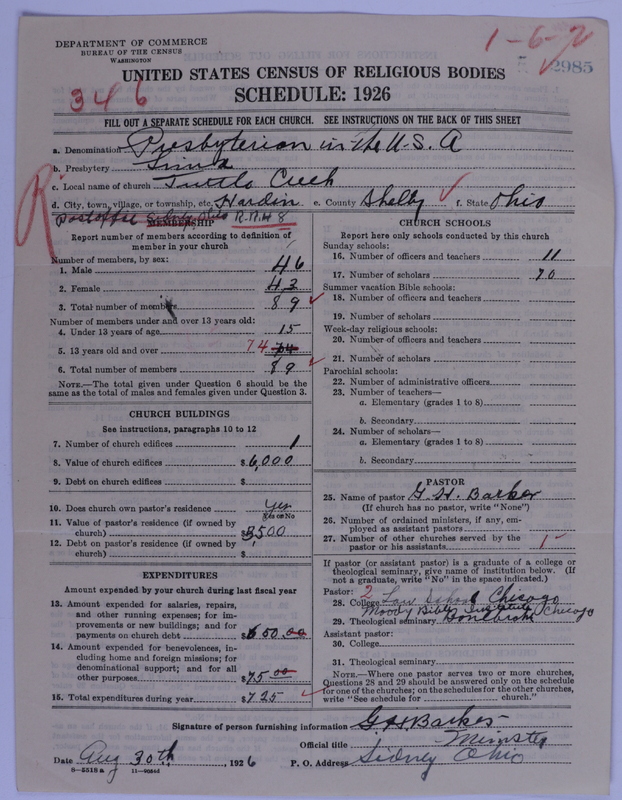 DEPARTMENT OF COMMERCE
BUREAU OF THE CENSUS
WASHINGTON
1-6-2
2985
UNITED STATES CENSUS OF RELIGIOUS BODIES
346
SCHEDULE: 1926
FILL OUT A SEPARATE SCHEDULE FOR EACH CHURCH. SEE INSTRUCTIONS ON THE BACK OF THIS SHEET
a. Denomination Presbyterian in the U.S.A
b. Presbytery Lima
c. Local name of church Turtle Creek
d. City, town, village, or township, etc. Hardin e. County Shelby f. State Ohio
R
Postoffice Sidney, Ohio R.R.# 8
MEMBERSHIP
Report number of members according to definition of
member in your church
Number of members, by sex:
1. Male 46
2. Female 43
3. Total number of members 89
Number of members under and over 13 years old:
4. Under 13 years of age 15
5. 13 years old and over 74
6. Total number of members 89
NOTE.—The total given under Question 6 should be
same as the total of males and females given under Question 3.
CHURCH BUILDINGS
See instructions, paragraphs 10 to 12
7. Number of church edifices 1
8. Value of church edifices $6,000
9. Debt on church edifices $
10. Does church own pastor's residence Yes
Yes or No
11. Value of pastor's residence (if owned by
church) $3500
12. Debt on pastor's residence (if owned by
church) $
EXPENDITURES
Amount expended by your church during last fiscal year
13. Amount expended for salaries, repairs,
and other running expenses; for im-
provements or new buildings; and for
payments on church debt $650.00
14. Amount expended for benevolences, in-
cluding home and foreign missions; for
denominational support; and for all
other purposes $75.00
15. Total expenditures during year $725
CHURCH SCHOOLS
Report here only schools conducted by this church
Sunday schools:
16. Number of officers and teachers 11
17. Number of scholars 70
Summer vacation Bible schools:
18. Number of officers and teachers
19. Number of scholars
Week-day religious schools:
20. Number of officers and teachers
21. Number of scholars
Parochial schools:
22. Number of administrative officers
23. Number of teachers—
a. Elementary (grades 1 to 8)
b. Secondary
24. Number of scholars—
a. Elementary (grades 1 to 8)
b. Secondary
PASTOR
25. Name of pastor G. H. Barker
(If church has no pastor, write "None")
26. Number of ordained ministers, if any, em-
ployed as assistant pastors
27. Number of other churches served by the
pastor or his assistants 1
If pastor (or assistant pastor) is a graduate of a college or
theological seminary, give name of institution below. (If
not a graduate, write "No" in the space indicated.)
Pastor: 2
28. College Law School Chicago
Moody Bible Institute Chicago
29. Theological seminary
Assistant pastor:
30. College
31. Theological seminary
NOTE.—Where one pastor serves two or more churches,
Questions 28 and 29 should be answered only on the schedule
for one of the churches; on the schedules for the other churches,
write "See schedule for church."
Signature of person furnishing information G H Barker
Official title Minister
Date Aug 30th, 1926 P. O. Address Sidney Ohio
8—5518 a